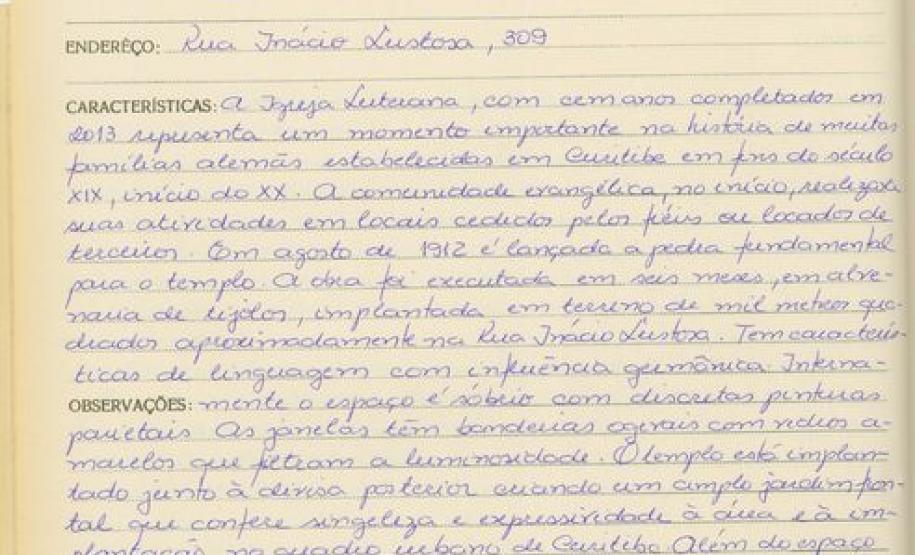 ENDERÊÇO: Rua Inácio Lustosa, 309
CARACTERÍSTICAS: A Igreja Luterana, com cem anos completados em
2013 representa um momento importante na história de muitas
famílias alemãs estabelecidas em Curitiba em fins do século
XIX, início do XX. A comunidade evangélica, no início, realizava
suas atividades em locais cedidos pelos fiéis ou locados de
terceiros. Em agosto de 1912 é lançada a pedra fundamental
para o templo. A obra foi executada em seis meses, em alve-
naria de tijolos, implantada em terreno de mil metros qua-
drados aproximadamente na Rua Inácio Lustosa. Tem caracterís-
ticas de linguagem com influência germânica. Interna-
OBSERVAÇÕES: mente o espaço é sóbrio com discretas pinturas
parietais. As janelas têm bandeiras ogivais com vidros a-
marelos que filtram a luminosidade. O templo está implan-
tado junto à divisa posterior criando um amplo jardim fron-
tal que confere singeleza e expressividade à área e à im-
plantação no quadro urbano de Curitiba. Além do espaço